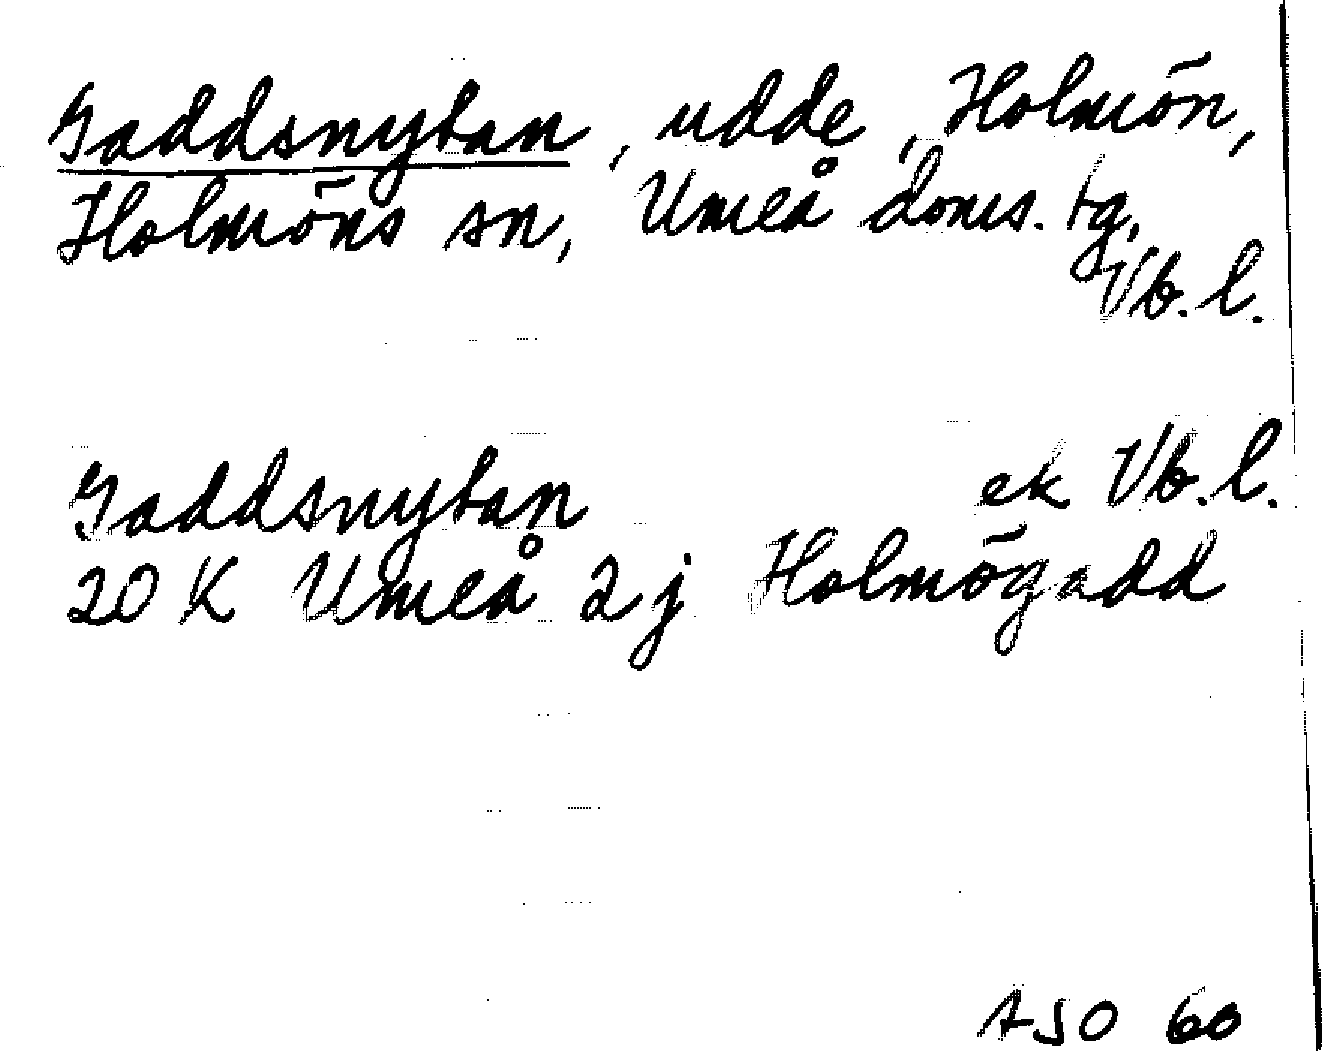 Gaddsnytan, udde, Holmön,
Holmöns sn, Umeå doms. tg,
Vb. l.
Gaddsnytan ek Vb. l.
20 K Umeå 2 j Holmögadd
ASO 60